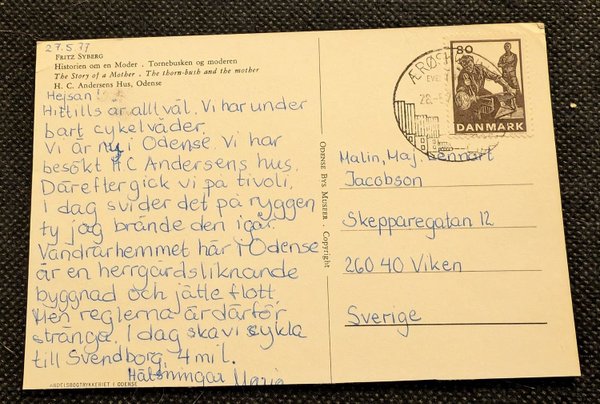 27.5.79
FRITZ SYBERG
Historien om en Moder . Tornebusken og moderen
The Story of a Mother . The thorn-bush and the mother
H. C. Andersens Hus, Odense
Hejsan!
Hittills är allt väl. Vi har under
bart cykelväder.
Vi är nu i Odense. Vi har
besökt H.C Andersens hus.
Därefter gick vi på tivoli.
I dag svider det på ryggen
ty jag brände den igår.
Vandrarhemmet här i Odense
är en herrgårdsliknande
byggnad och jätte flott.
Men reglerna är därför
stränga. I dag ska vi cykla
till Svendborg, 4 mil.
Hälsningar Marie
ANDELSBOGTRYKKERIET I ODENSE
ODENSE BYS MUSEER . Copyright
80
DANMARK
28.
Malin, Maj, Lennart
Jacobson
Skepparegatan 12
260 40 Viken
Sverige